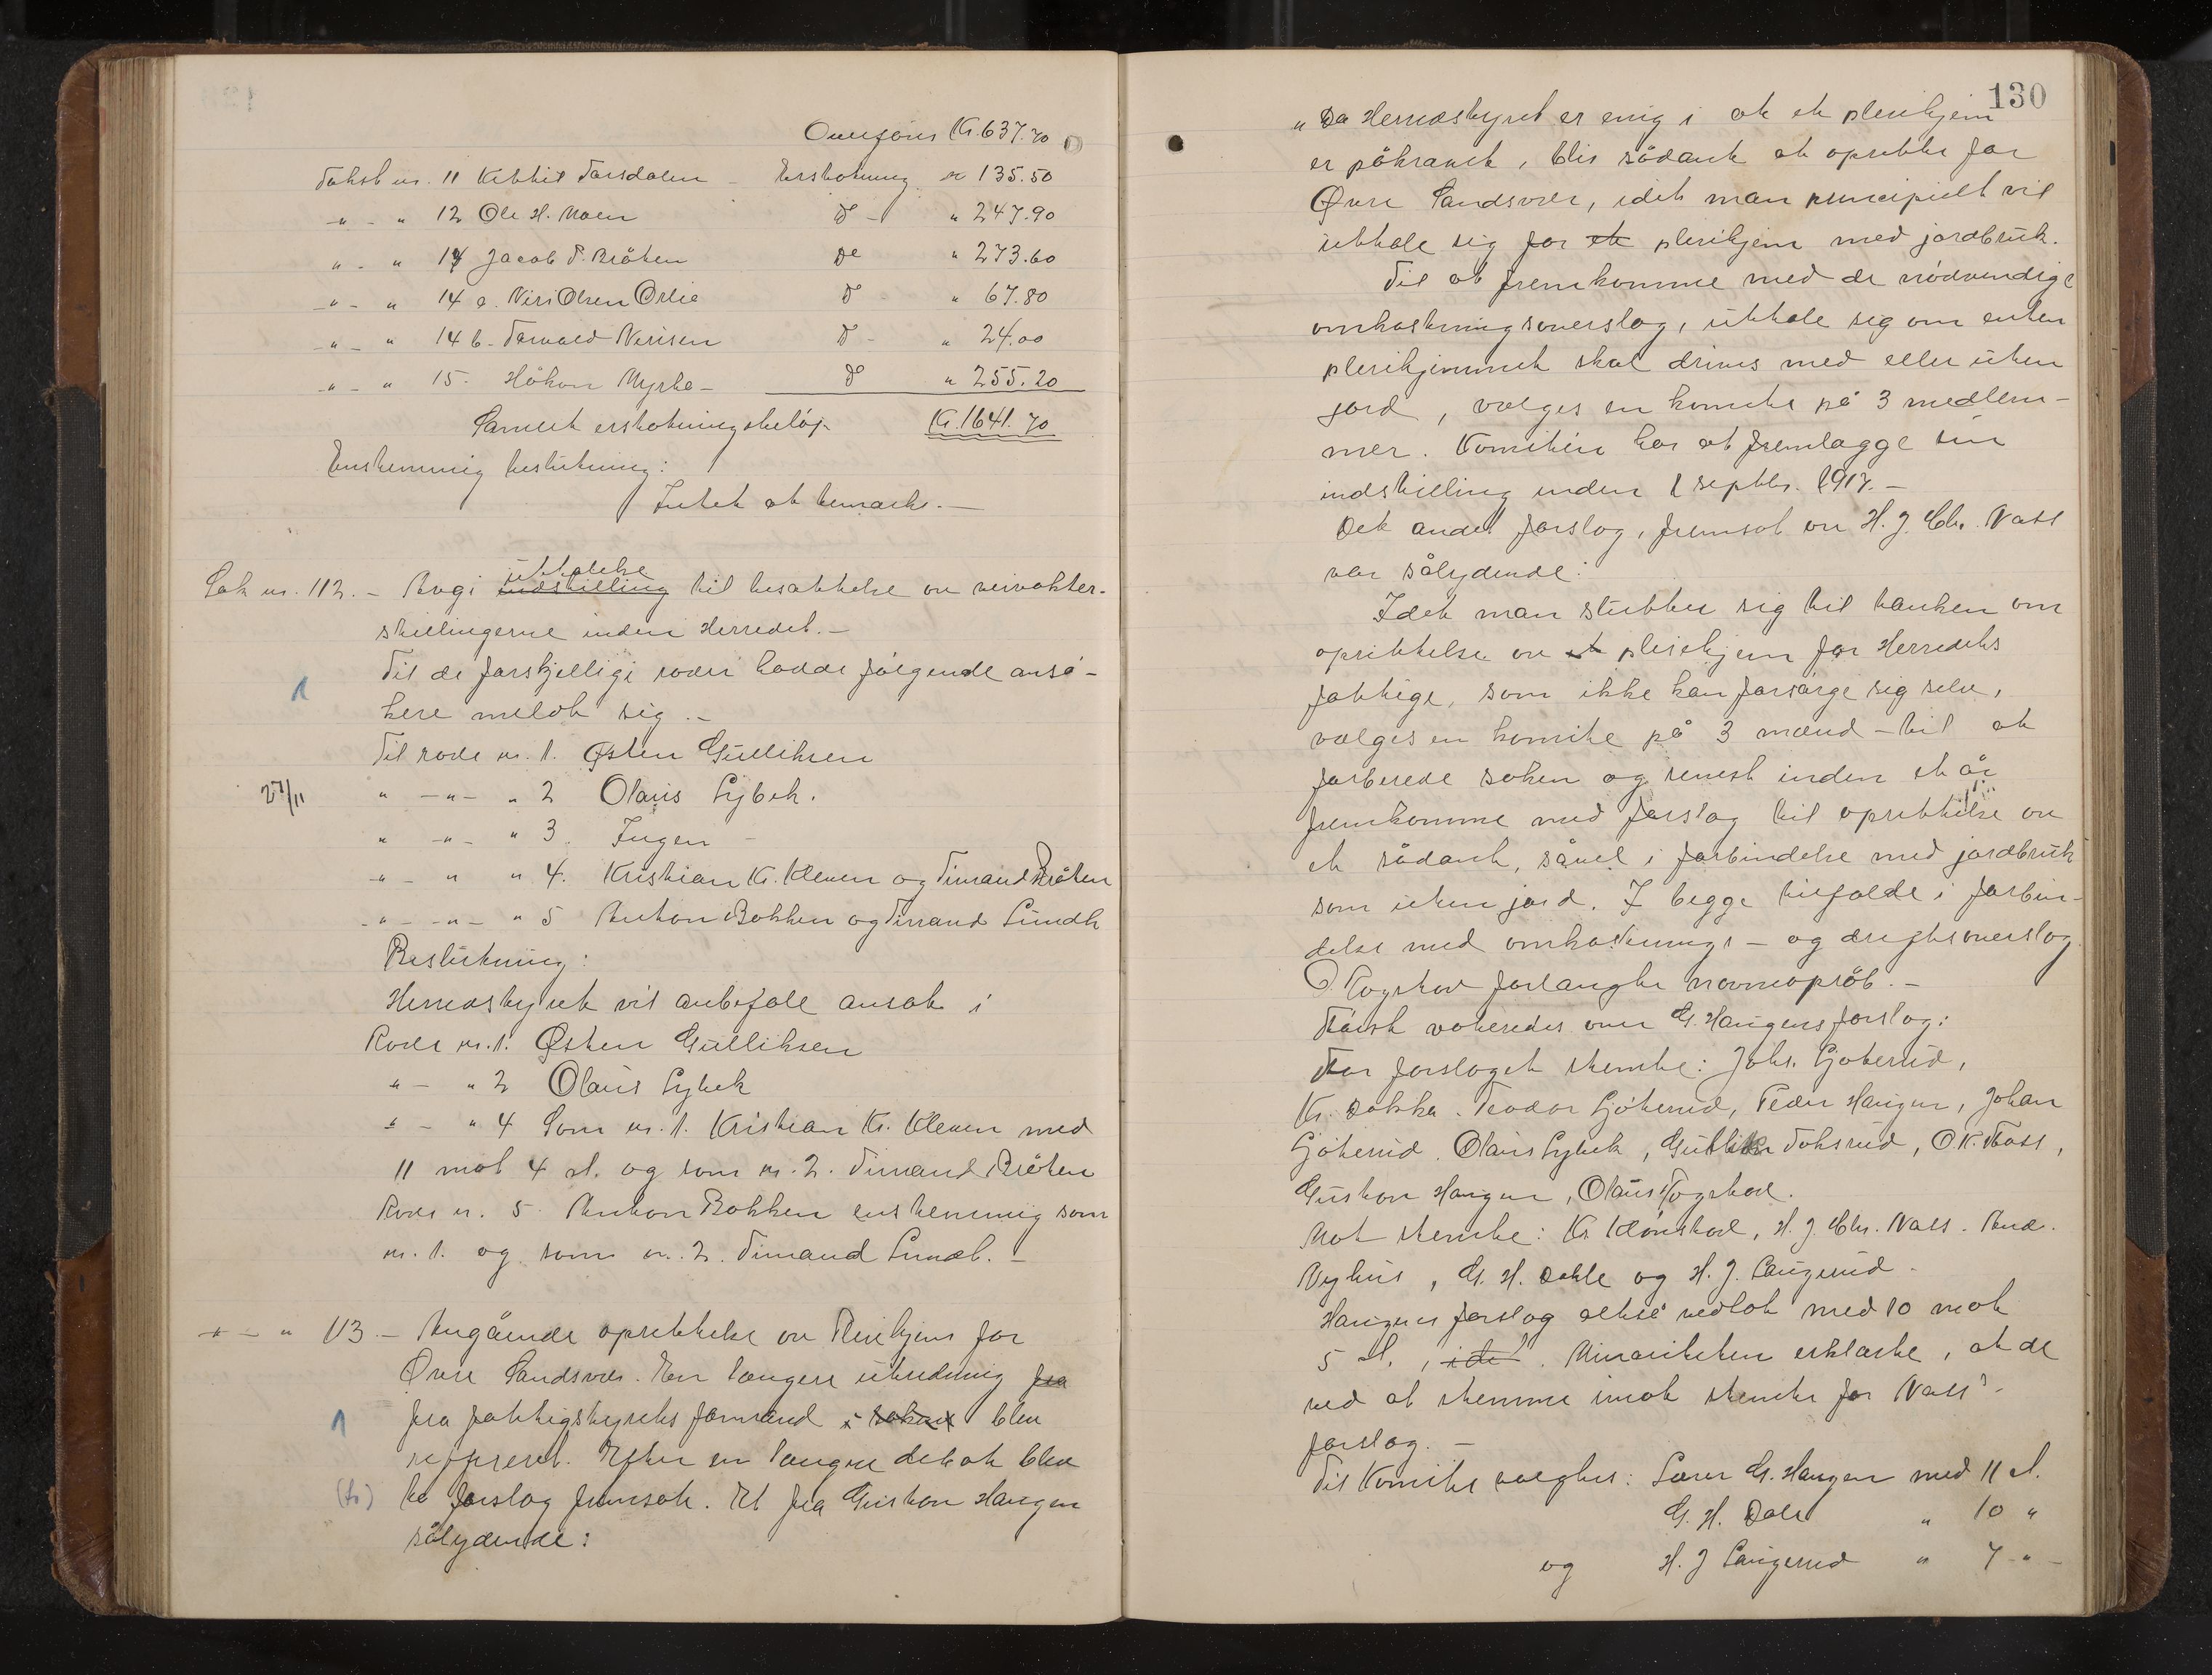 Overføres Kr. 637.70
Takst nr. 11 Kittil Tarsdalen - Erstatning kr 135.50
" - " 12 Ole H. Moen Do - " 247.90
" - " 13 Jacob T. Bråten Do " 273.60
" - " 14 a. Niri Olsen Ørlie Do - " 67.80
" - " 14 b - Torvald Nirisen Do - " 24.00
" - " 15. Håkon Myrbø - Do " 255.20
Samlet erstatningsbeløp Kr. 1641.70
Enstemmig beslutning:
Intet at bemerke. -
uttalelse
Sak nr. 112. - Avgi indstilling til besættelse av veivokter-
stillingerne inden Herredet. -
Til de forskjellige roder hadde følgende ansø-
kere meldt sig. -
Til rode nr. 1. Østen Gulliksen
27/11 " -"- " 2 Olaus Lybek.
" -"- " 3. Ingen -
-"- " " 4. Kristian Kr. Kleven og Timand Bråten
-"- -"- " 5 Anton Bakken og Timand Lundh
Beslutning:
Herredstyret vil anbefale ansat i
Rode nr. 1. Østen Gulliksen
" - " 2 Olaus Lybek
" - " 4 Som nr. 1. Kristian Kr. Kleven med
11 mot 4 st. og som nr. 2. Timand Bråten
Rode nr. 5. Anton Bakken enstemmig som
nr. 1. og som nr. 2. Timand Lundh. -
-"- " 113 - Angående oprettelse av Pleiehjem for
Øvre Sandsvær. En længere utredning fra
fra fattigstyrets formand i saken blev
referert. Efter en længere debat blev
(to) to forslag fremsat. Et fra Gustav Haugen
sålydende:
130
"Da Herredstyret er enig i at et pleiehjem
er påkrævet, blir sådant at oprette for
Øvre Sandsvær, idet man principielt vil
uttale sig for et pleiehjem med jordbruk.
Til at fremkomme med de nødvendige
omkostningsoverslag, uttale sig om enten
pleiehjemmet skal drives med eller uten
jord, vælges en komite på 3 medlem-
mer. Komiteen har at fremlægge sin
indstilling inden 1 septbr. 1917. -
Det andet forslag, fremsat av H. J. Chr. Næss
var sålydende:
Idet man slutter sig til tanken om
oprettelse av et pleiehjem for Herredets
fattige, som ikke kan forsørge sig selv,
vælges en komite på 3 mænd - til at
forberede saken og senest inden et år
fremkomme med forslag til oprettelse av
et sådant, såvel i forbindelse med jordbruk
som uten jord. I begge tilfælde i forbin-
delse med omkostnings - og driftsoverslag
O. Togstad forlangte navneoprop. -
Først voteredes over G. Haugens forslag:
For forslaget stemte: Johs. Gjøterud,
Kr. Dokka. Teodor Gjøterud, Peder Haugen, Johan
Gjøterud, Olaus Lybek, Gullik Toksrud, O. K. Foss,
Gustav Haugen, Olaus Togstad.
Mot stemte: Kr. Klonstad, H. J. Chr. Næss. And.
Nyhus, G. H. Dahle og H. J. Laugerud -
Haugens forslag altså vedtat med 10 mot
5 st., ide. Minoriteten erklærte, at de
ved at stemme imot stemte for Næss's
forslag. -
Til Komite valgtes: Lærer G. Haugen med 11 st.
G. H. Dale " 10 "
og H. J Laugerud " 7 - " -